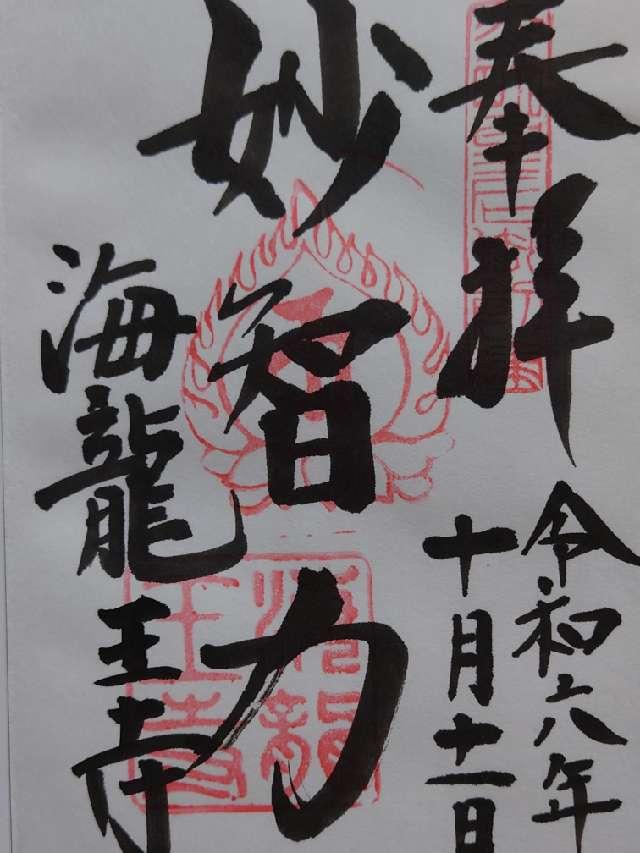 奉拝
令和六年
十月十一日
妙智力
海龍王寺
海龍
王寺